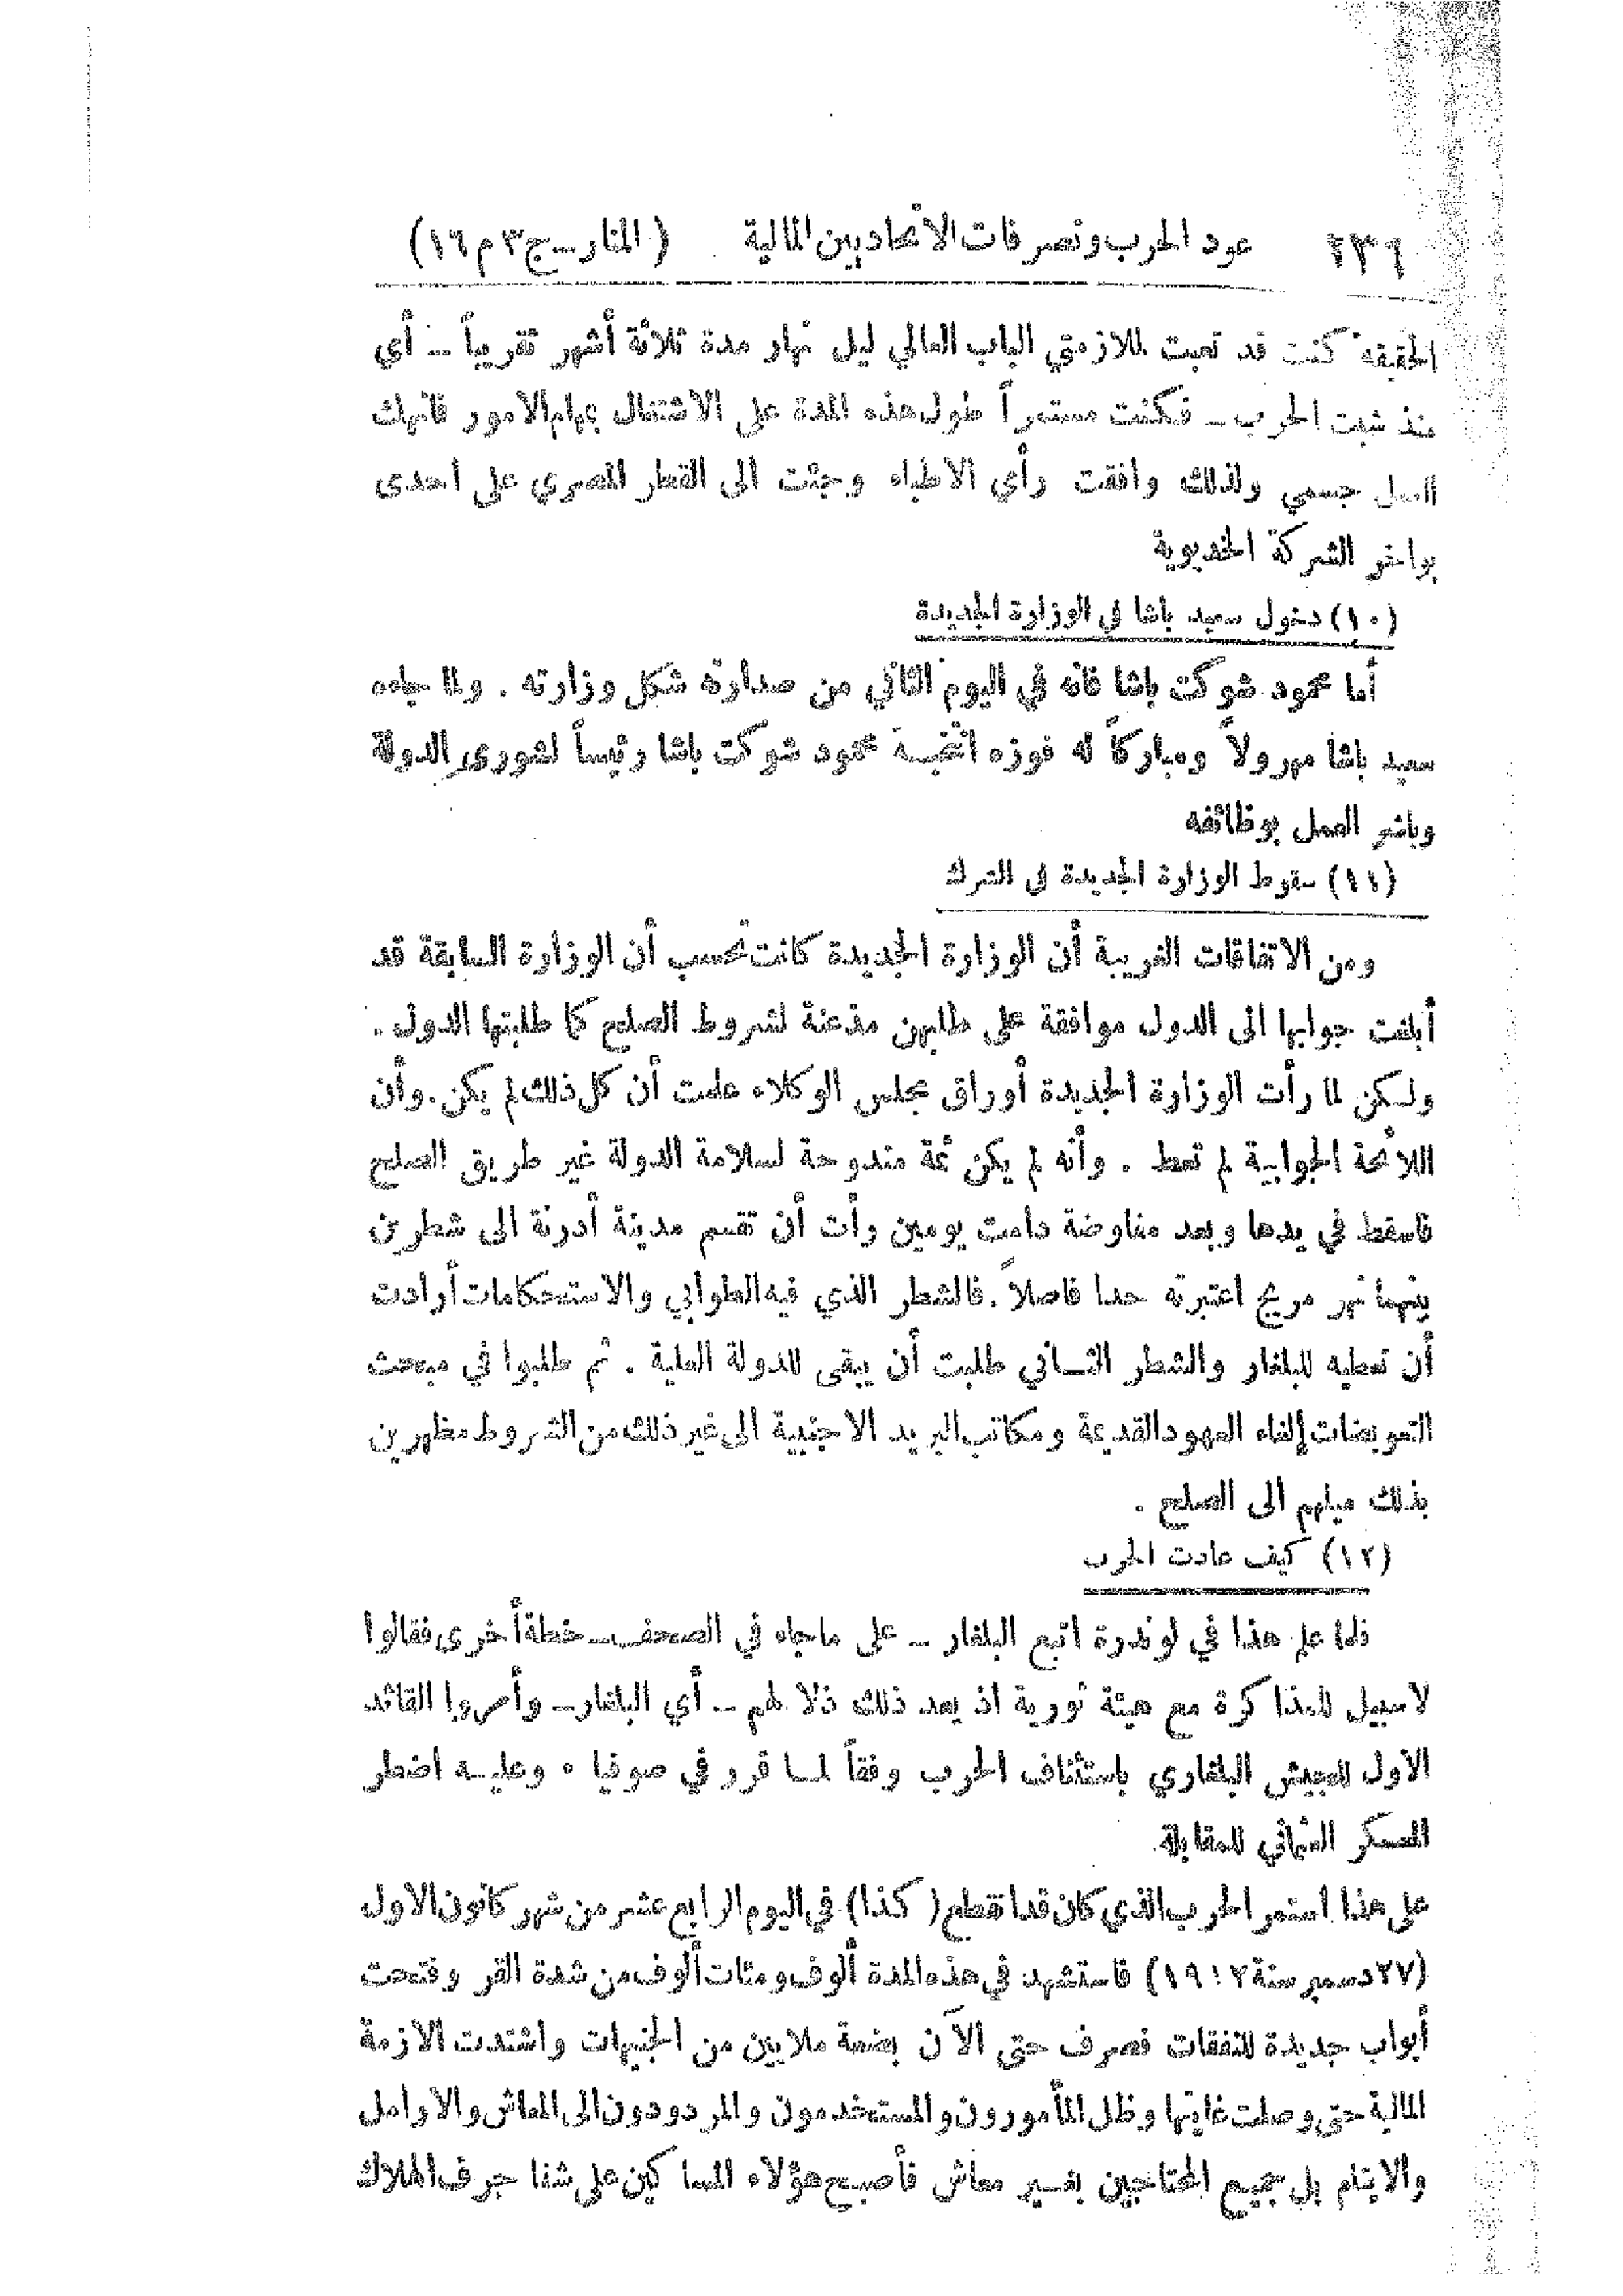 ٢٣٦ عود الحرب وتصرفات الاتحاديين المالية ( المنار ــ ج ٣ م ١٦ )
الحقيقة كنت قد تعبت لملازمتي الباب العالي ليل نهار مدة ثلاثة أشهر تقريباً ــ أي
منذ شبت الحرب ــ فكنت مستمراً طول هذه المدة على الاشتغال بمهام الامور فانهك
العمل جسمي ولذلك وافقت رأي الاطباء وجئت الى القطر المصري على احدى
بواخر الشركة الخديوية
(١٠) دخول سعيد باشا في الوزارة الجديدة
أما محمود شوكت باشا فانه في اليوم الثاني من صدارته شكل وزارته . ولما جاءه
سعيد باشا مهرولاً ومباركاً له فوزه انتخبه محمود شوكت باشا رئيساً لشورى الدولة
وباشر العمل بوظائفه
(١١) سقوط الوزارة الجديدة في الشرك
ومن الاتفاقات الغريبة أن الوزارة الجديدة كانت تحسب أن الوزارة السابقة قد
أبلغت جوابها الى الدول موافقة على طلبهن مذعنة لشروط الصلح كما طلبتها الدول .
ولكن لما رأت الوزارة الجديدة أوراق مجلس الوكلاء علمت أن كل ذلك لم يكن . وأن
اللائحة الجوابية لم تعط . وأنه لم يكن ثمة مندوحة لسلامة الدولة غير طريق الصلح
فاسقط في يدها وبعد مفاوضة دامت يومين رأت أن تقسم مدينة أدرنة الى شطرين
بينهما نهر مريج اعتبرته حدا فاصلاً . فالشطر الذي فيه الطوابي والاستحكامات أرادت
أن تعطيه للبلغار والشطر الثــاني طلبت أن يبقى للدولة العلية . ثم طلبوا في مبحث
التعويضات إلغاء العهود القديمة ومكاتب البريد الاجنبية الى غير ذلك من الشروط مظهرين
بذلك ميلهم الى الصلح .
(١٢) كيف عادت الحرب
فلما علم هذا في لوندرة اتبع البلغار ــ على ماجاء في الصحف ــ خطة أخرى فقالوا
لا سبيل للمذاكرة مع هيئة ثورية اذ يعد ذلك ذلا لهم ــ أي البلغار ــ وأمروا القائد
الاول للجيش البلغاري باستئناف الحرب وفقاً لمــا قرر في صوفيا ٠ وعليــه اضطر
العسكر العثماني للمقابلة
على هذا استمر الحرب الذي كان قد انقطع ( كذا ) في اليوم الرابع عشر من شهر كانون الاول
(٢٧ دسمبر سنة ١٩١٢) فاستشهد في هذه المدة ألوف ومئات ألوف من شدة القر وفتحت
أبواب جديدة للنفقات فصرف حتى الآن بضعة ملايين من الجنيهات واشتدت الازمة
المالية حتى وصلت غايتها وظل المأمورون والمستخدمون والمردودون الى المعاش والارامل
والايتام بل جميع المحتاجين بغــير معاش فأصبح هؤلاء المساكين على شفا جرف الهلاك